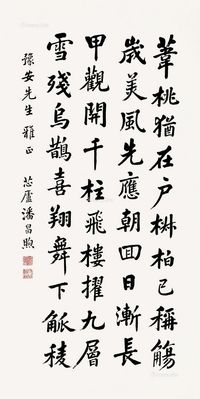 葦桃猶在戶椒柏已稱觴
歲美風先應朝回日漸長
甲觀開千柱飛樓擢九層
雪殘烏鵲喜翔舞下觚稜
豫安先生 雅正
芯廬潘昌煦